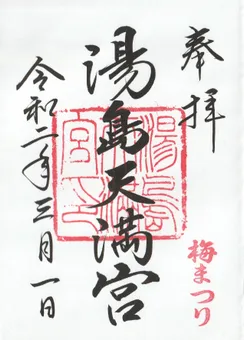 奉拝
梅まつり
湯島天満宮
令和二年三月一日